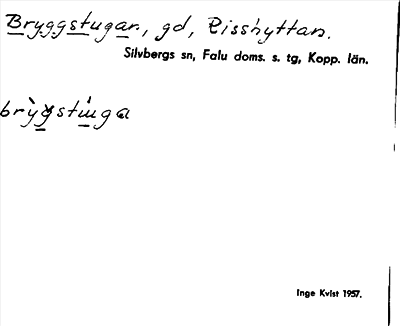 Bryggstugan, gd, Risshyttan.
Silvbergs sn, Falu doms. s. tg, Kopp. län.
bry̆gstuga
Inge Kvist 1957.